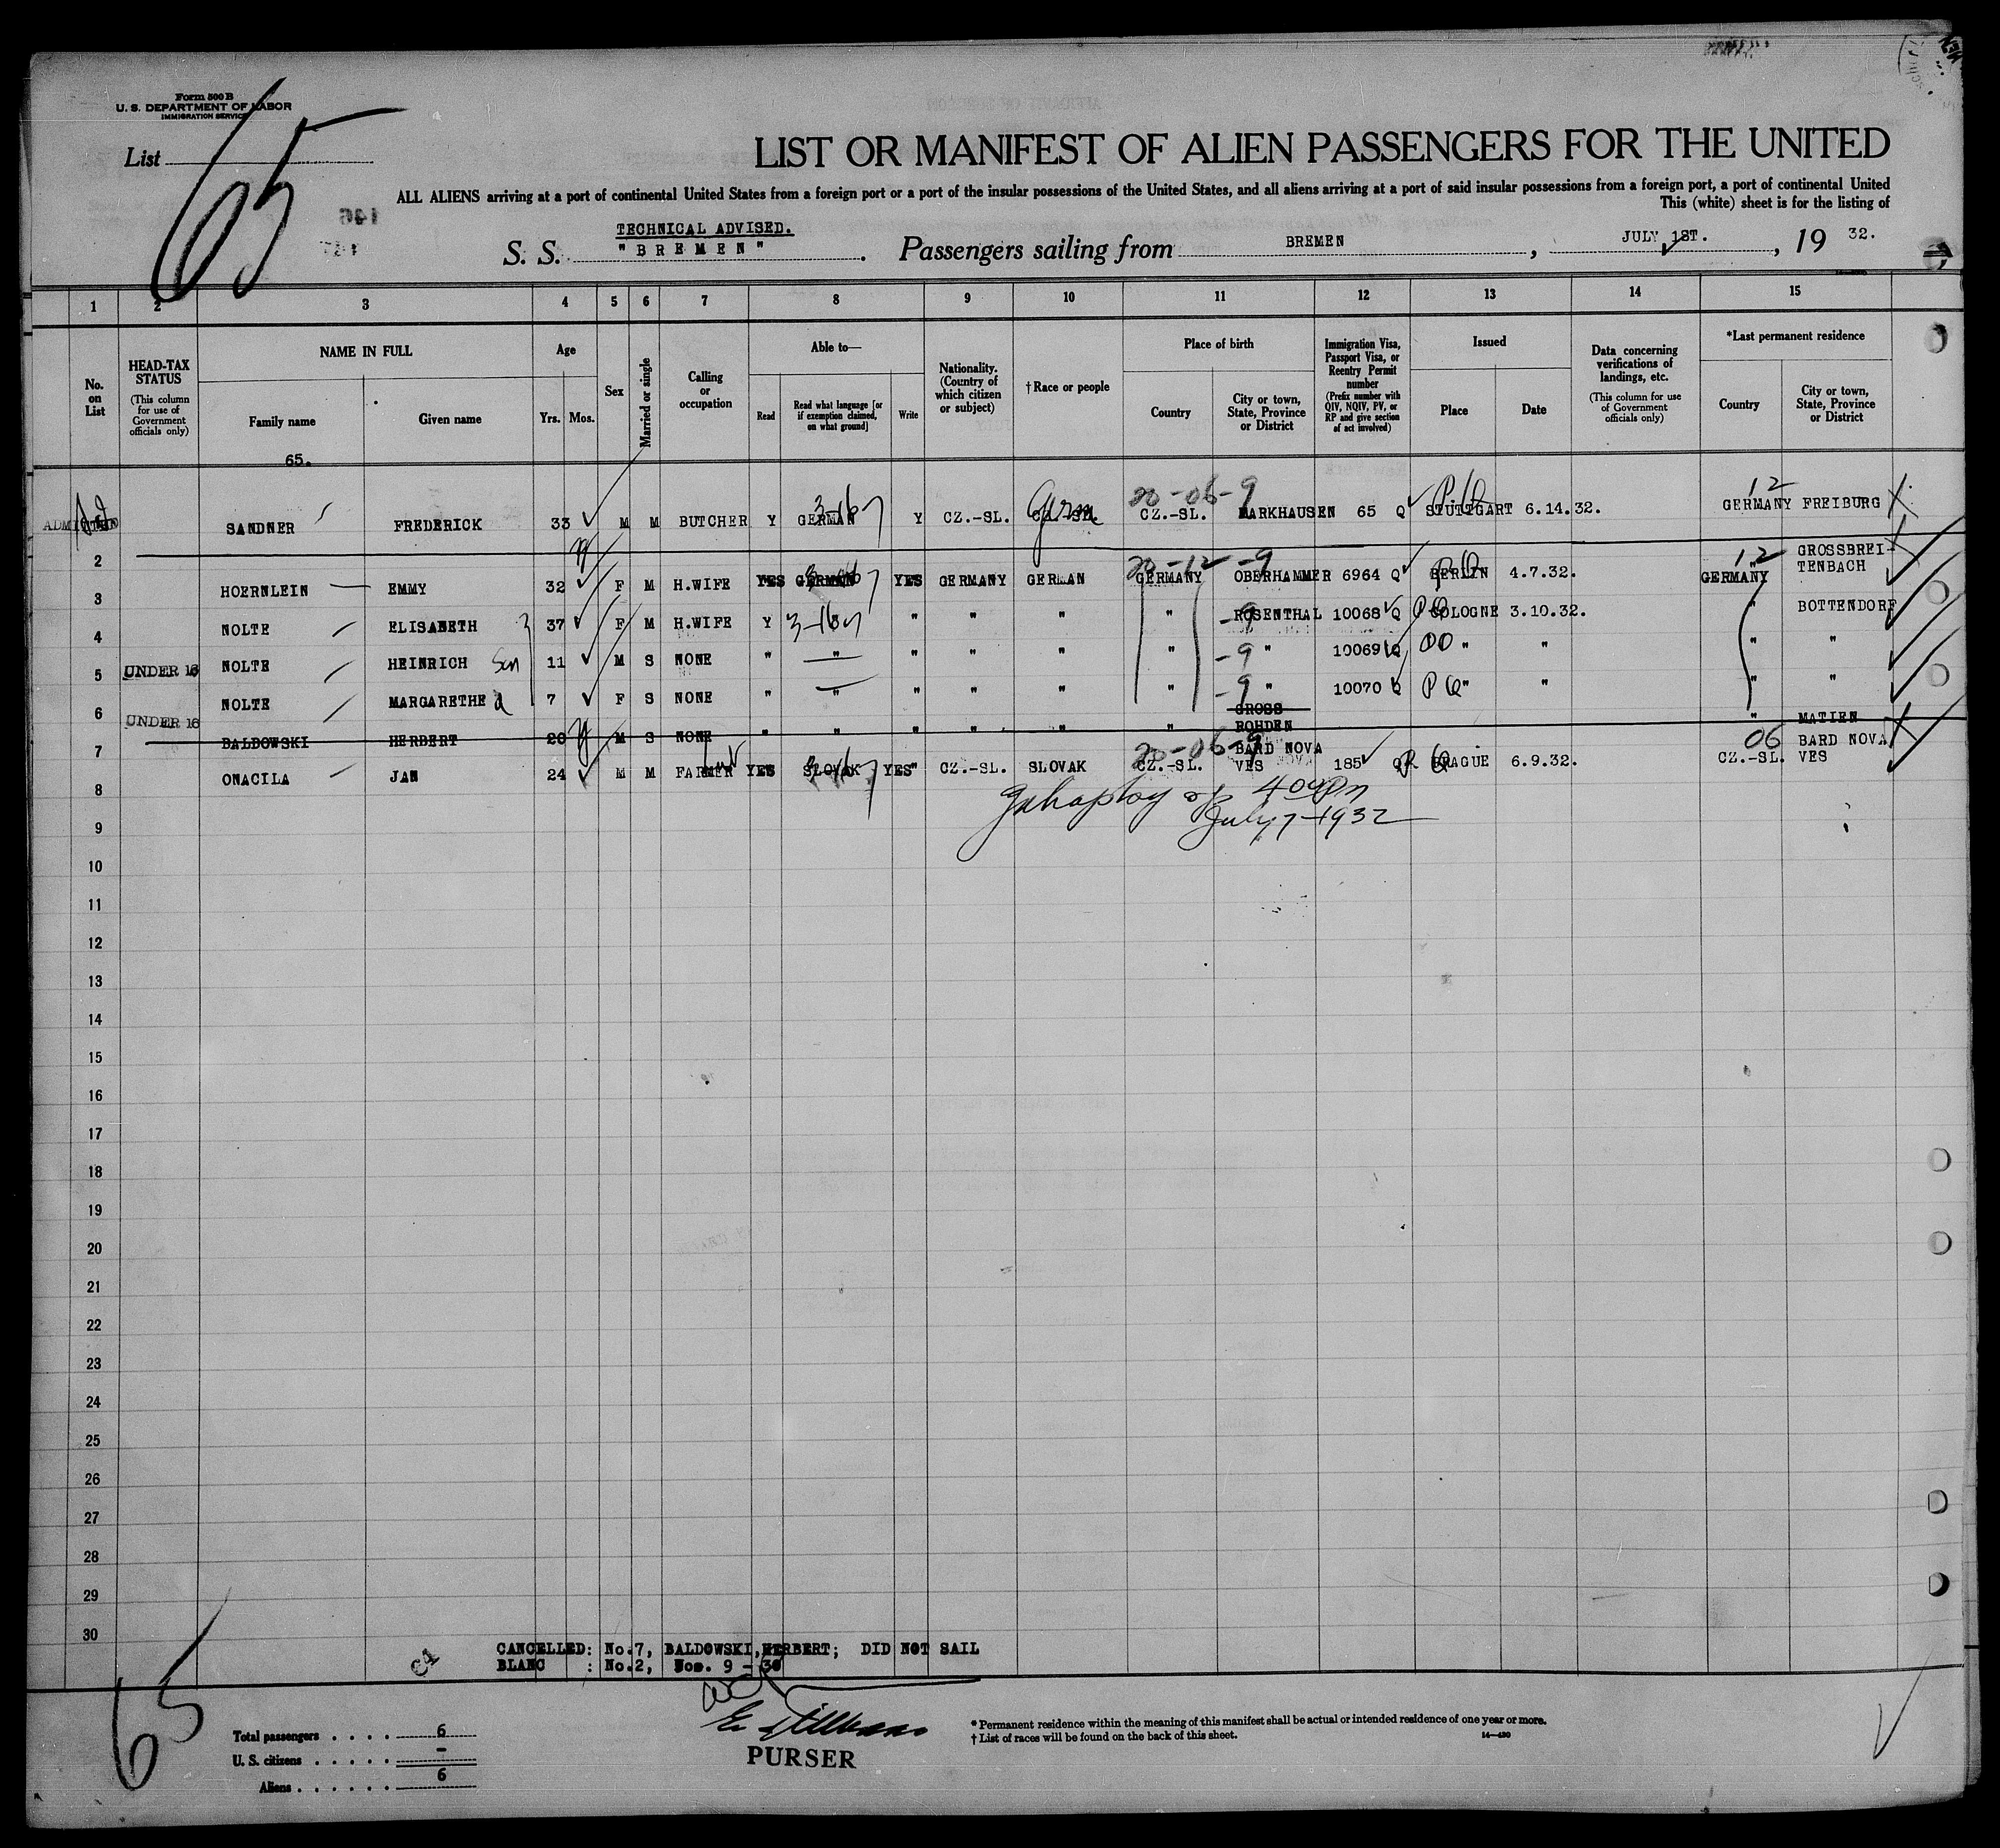 Form 500 B
U. S. DEPARTMENT OF LABOR
IMMIGRATION SERVICE
List 65
LIST OR MANIFEST OF ALIEN PASSENGERS FOR THE UNITED
ALL ALIENS arriving at a port of continental United States from a foreign port or a port of the insular possessions of the United States, and all aliens arriving at a port of said insular possessions from a foreign port, a port of continental United
This (white) sheet is for the listing of
TECHNICAL ADVISED.
S. S. "BREMEN". Passengers sailing from BREMEN, JULY 1ST., 19 32.
1 2 3 4 5 6 7 8 9 10 11 12 13 14 15
No. on List
HEAD-TAX STATUS (This column for use of Government officials only)
NAME IN FULL
Family name Given name
Age
Yrs. Mos.
Sex
Married or single
Calling or occupation
Able to—
Read Read what language [or if exemption claimed, on what ground] Write
Nationality. (Country of which citizen or subject)
† Race or people
Place of birth
Country City or town, State, Province or District
Immigration Visa, Passport Visa, or Reentry Permit number (Prefix number with QIV, NQIV, PV, or RP and give section of act involved)
Issued
Place Date
Data concerning verifications of landings, etc. (This column for use of Government officials only)
*Last permanent residence
Country City or town, State, Province or District
65.
ADMITTED SANDNER FREDERICK 33 M M BUTCHER Y GERMAN 3-16 Y CZ.-SL. CZ.-SL. Germ 20-06-9 CZ.-SL. MARKHAUSEN 65 Q STUTTGART 6.14.32. 12 GERMANY FREIBURG
2
3 HOERNLEIN EMMY 32 F M H.WIFE YES GERMAN YES GERMANY GERMAN 20-12-9 GERMANY OBERHAMMER 6964 Q BERLIN 4.7.32. 12 GERMANY GROSSBREI-TENBACH
4 NOLTE ELISABETH 37 F M H.WIFE Y 3-16 " " " " -9 ROSENTHAL 10068 Q COLOGNE 3.10.32. " BOTTENDORF
5 UNDER 16 NOLTE HEINRICH Son 11 M S NONE " " " " " " -9 " 10069 Q " " " "
6 UNDER 16 NOLTE MARGARETHE d 7 F S NONE " " " " " " -9 " 10070 Q " " " "
7 BALDOWSKI HERBERT 20 M S NONE " " " " " " GROSS ROHDEN " MATIEN
8 ONACILA JAN 24 M M FARMER YES SLOVAK YES" CZ.-SL. SLOVAK 20-06-9 CZ.-SL. BARD NOVA VES 185 Q PRAGUE 6.9.32. 06 CZ.-SL. BARD NOVA VES
400 Pm
July 7-1932
9
10
11
12
13
14
15
16
17
18
19
20
21
22
23
24
25
26
27
28
29
30
CANCELLED: No.7, BALDOWSKI, HERBERT; DID NOT SAIL
BLANC : No.2, Nos. 9 - 30
65
Total passengers . . . . 6
U. S. citizens . . . . . -
Aliens . . . . . . 6
PURSER
* Permanent residence within the meaning of this manifest shall be actual or intended residence of one year or more.
† List of races will be found on the back of this sheet.
14—430